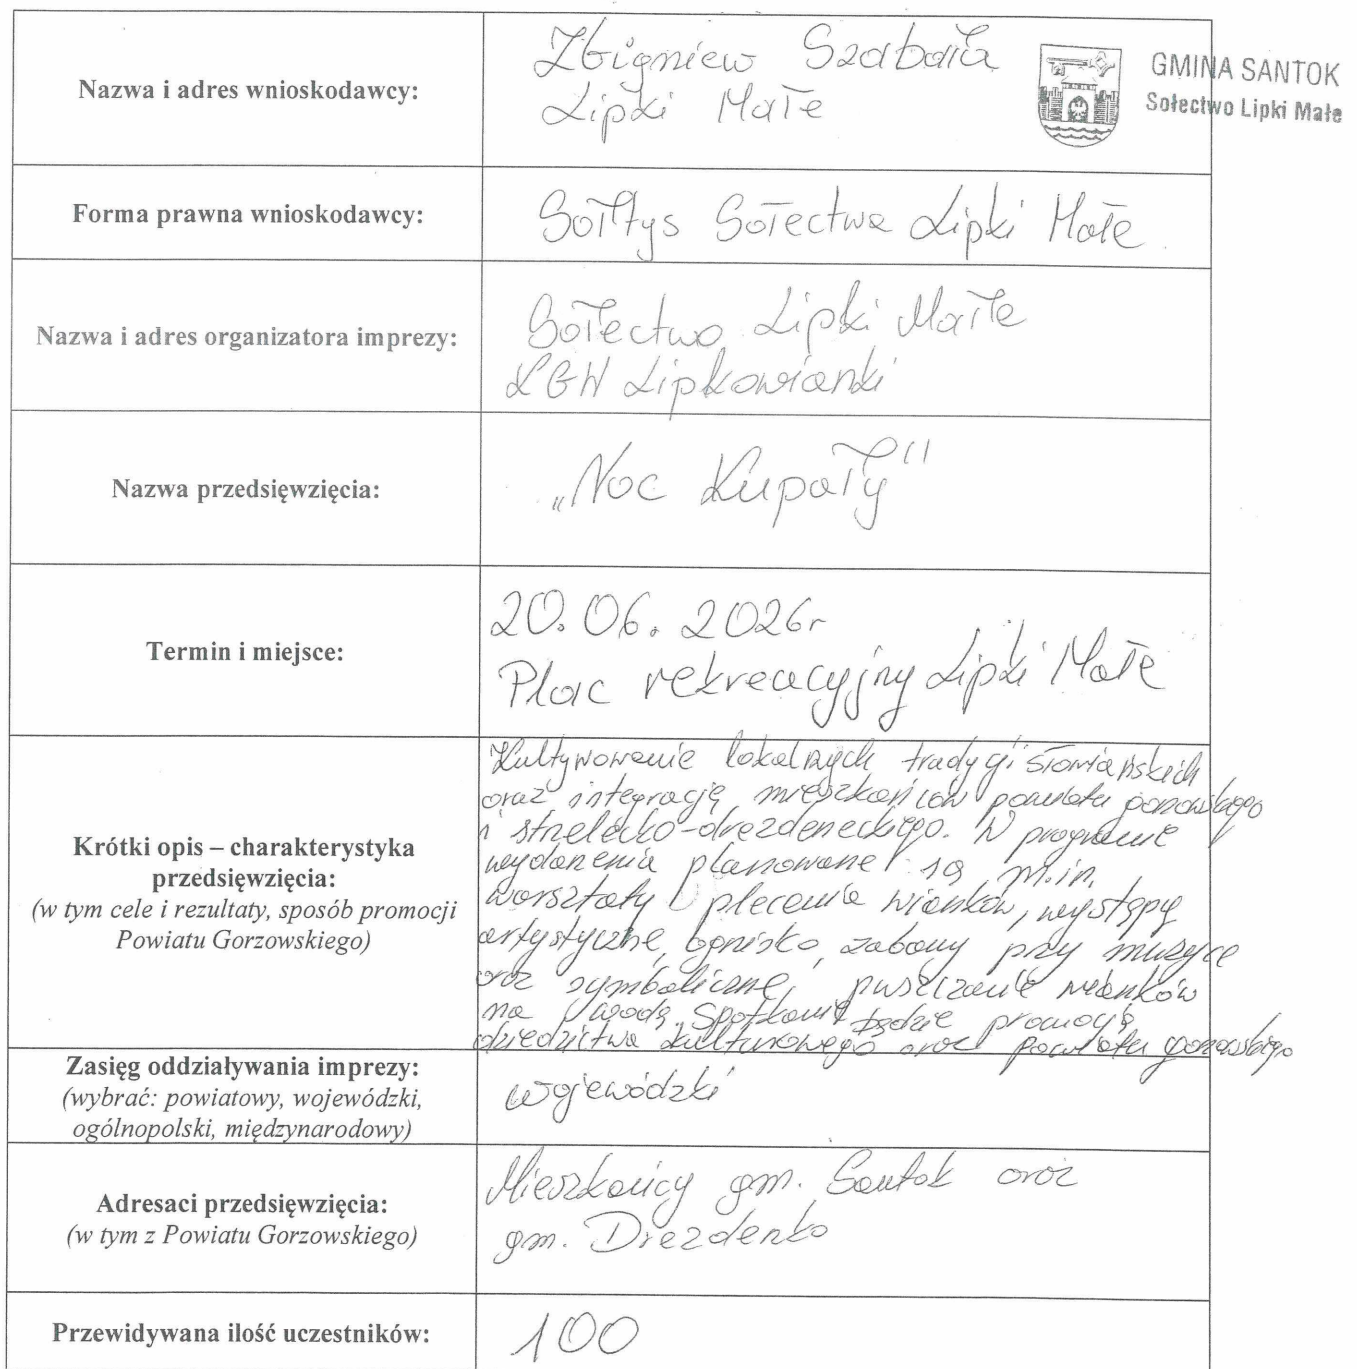 Nazwa i adres wnioskodawcy:
Zbigniew Szabała
Lipki Małe
GMINA SANTOK
Sołectwo Lipki Małe
Forma prawna wnioskodawcy:
Sołtys Sołectwa Lipki Małe
Nazwa i adres organizatora imprezy:
Sołectwo Lipki Małe
KGW Lipkowianki
Nazwa przedsięwzięcia:
„Noc Kupały"
Termin i miejsce:
20.06.2026r
Plac rekreacyjny Lipki Małe
Krótki opis – charakterystyka
przedsięwzięcia:
(w tym cele i rezultaty, sposób promocji
Powiatu Gorzowskiego)
Kultywowanie lokalnych tradycji słowiańskich
oraz integrację mieszkańców powiatu gorzowskiego
i strzelecko-drezdeneckiego. W programie
wydarzenia planowane są m.in.
warsztaty plecenia wianków, występy
artystyczne, ognisko, zabawy przy muzyce
oraz symboliczne puszczanie wianków
na wodę. Spotkanie będzie promocją
dziedzictwa kulturowego oraz powiatu gorzowskiego
Zasięg oddziaływania imprezy:
(wybrać: powiatowy, wojewódzki,
ogólnopolski, międzynarodowy)
wojewódzki
Adresaci przedsięwzięcia:
(w tym z Powiatu Gorzowskiego)
Mieszkańcy gm. Santok oraz
gm. Drezdenko
Przewidywana ilość uczestników:
100